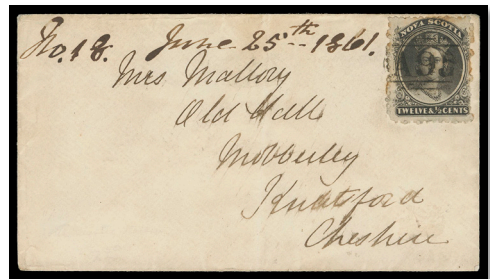 No. 18. June 25th 1861.
NOVA SCOTIA
A95
TWELVE & ½ CENTS
Mrs Mallory
Old Hall
Mobberley
Knutsford
Cheshire